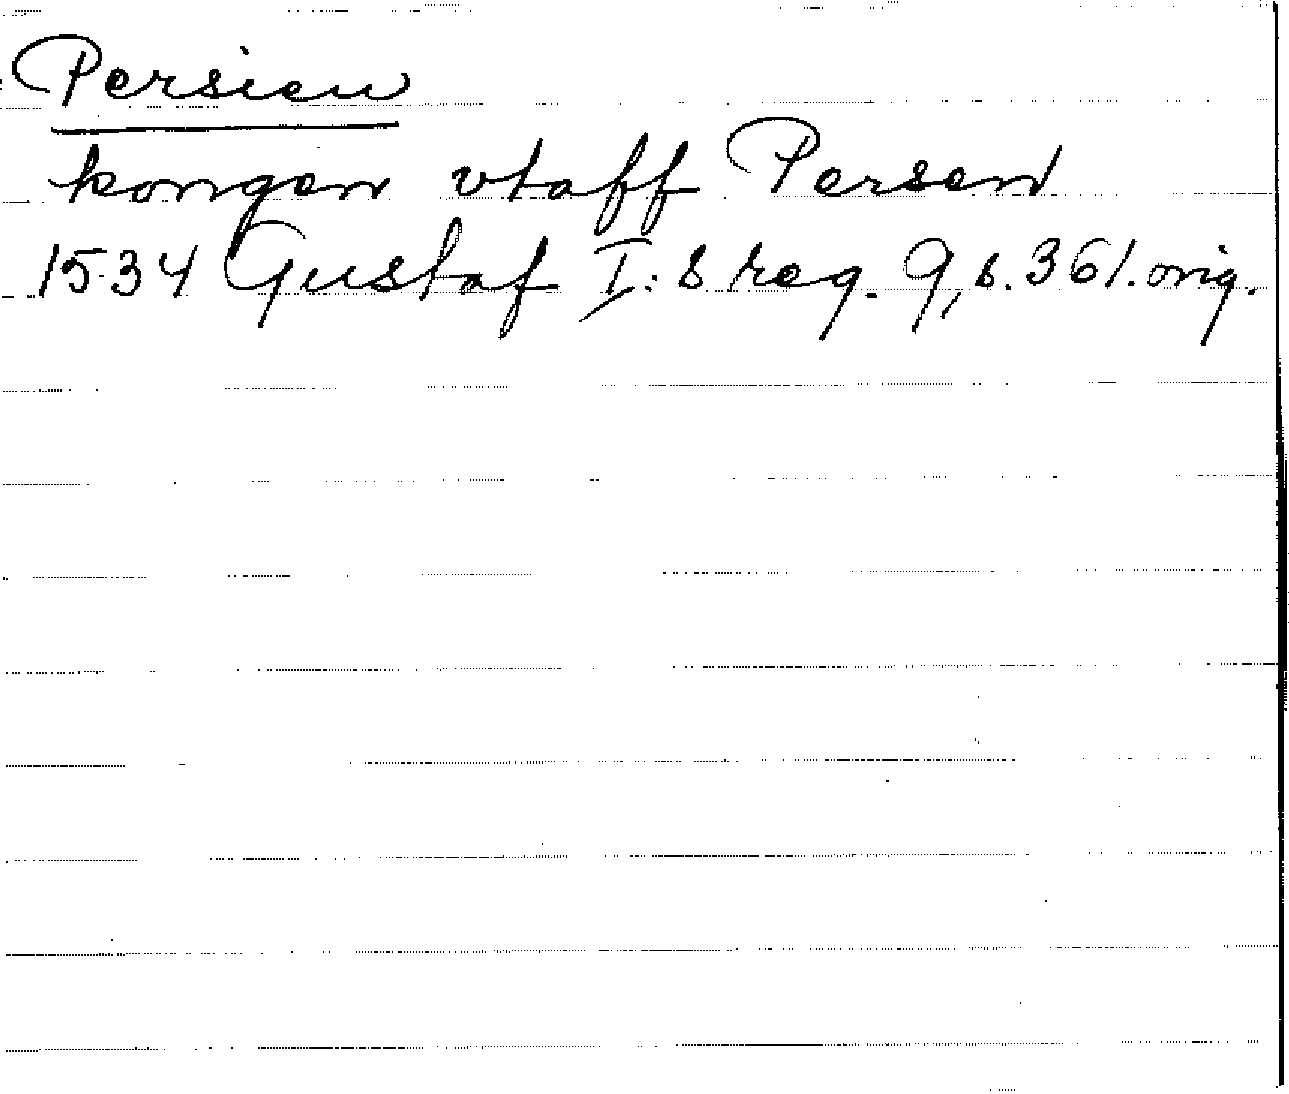 Persien
kongen vtaff Persen
1534 Gustaf I:s reg. 9, s. 361. orig.